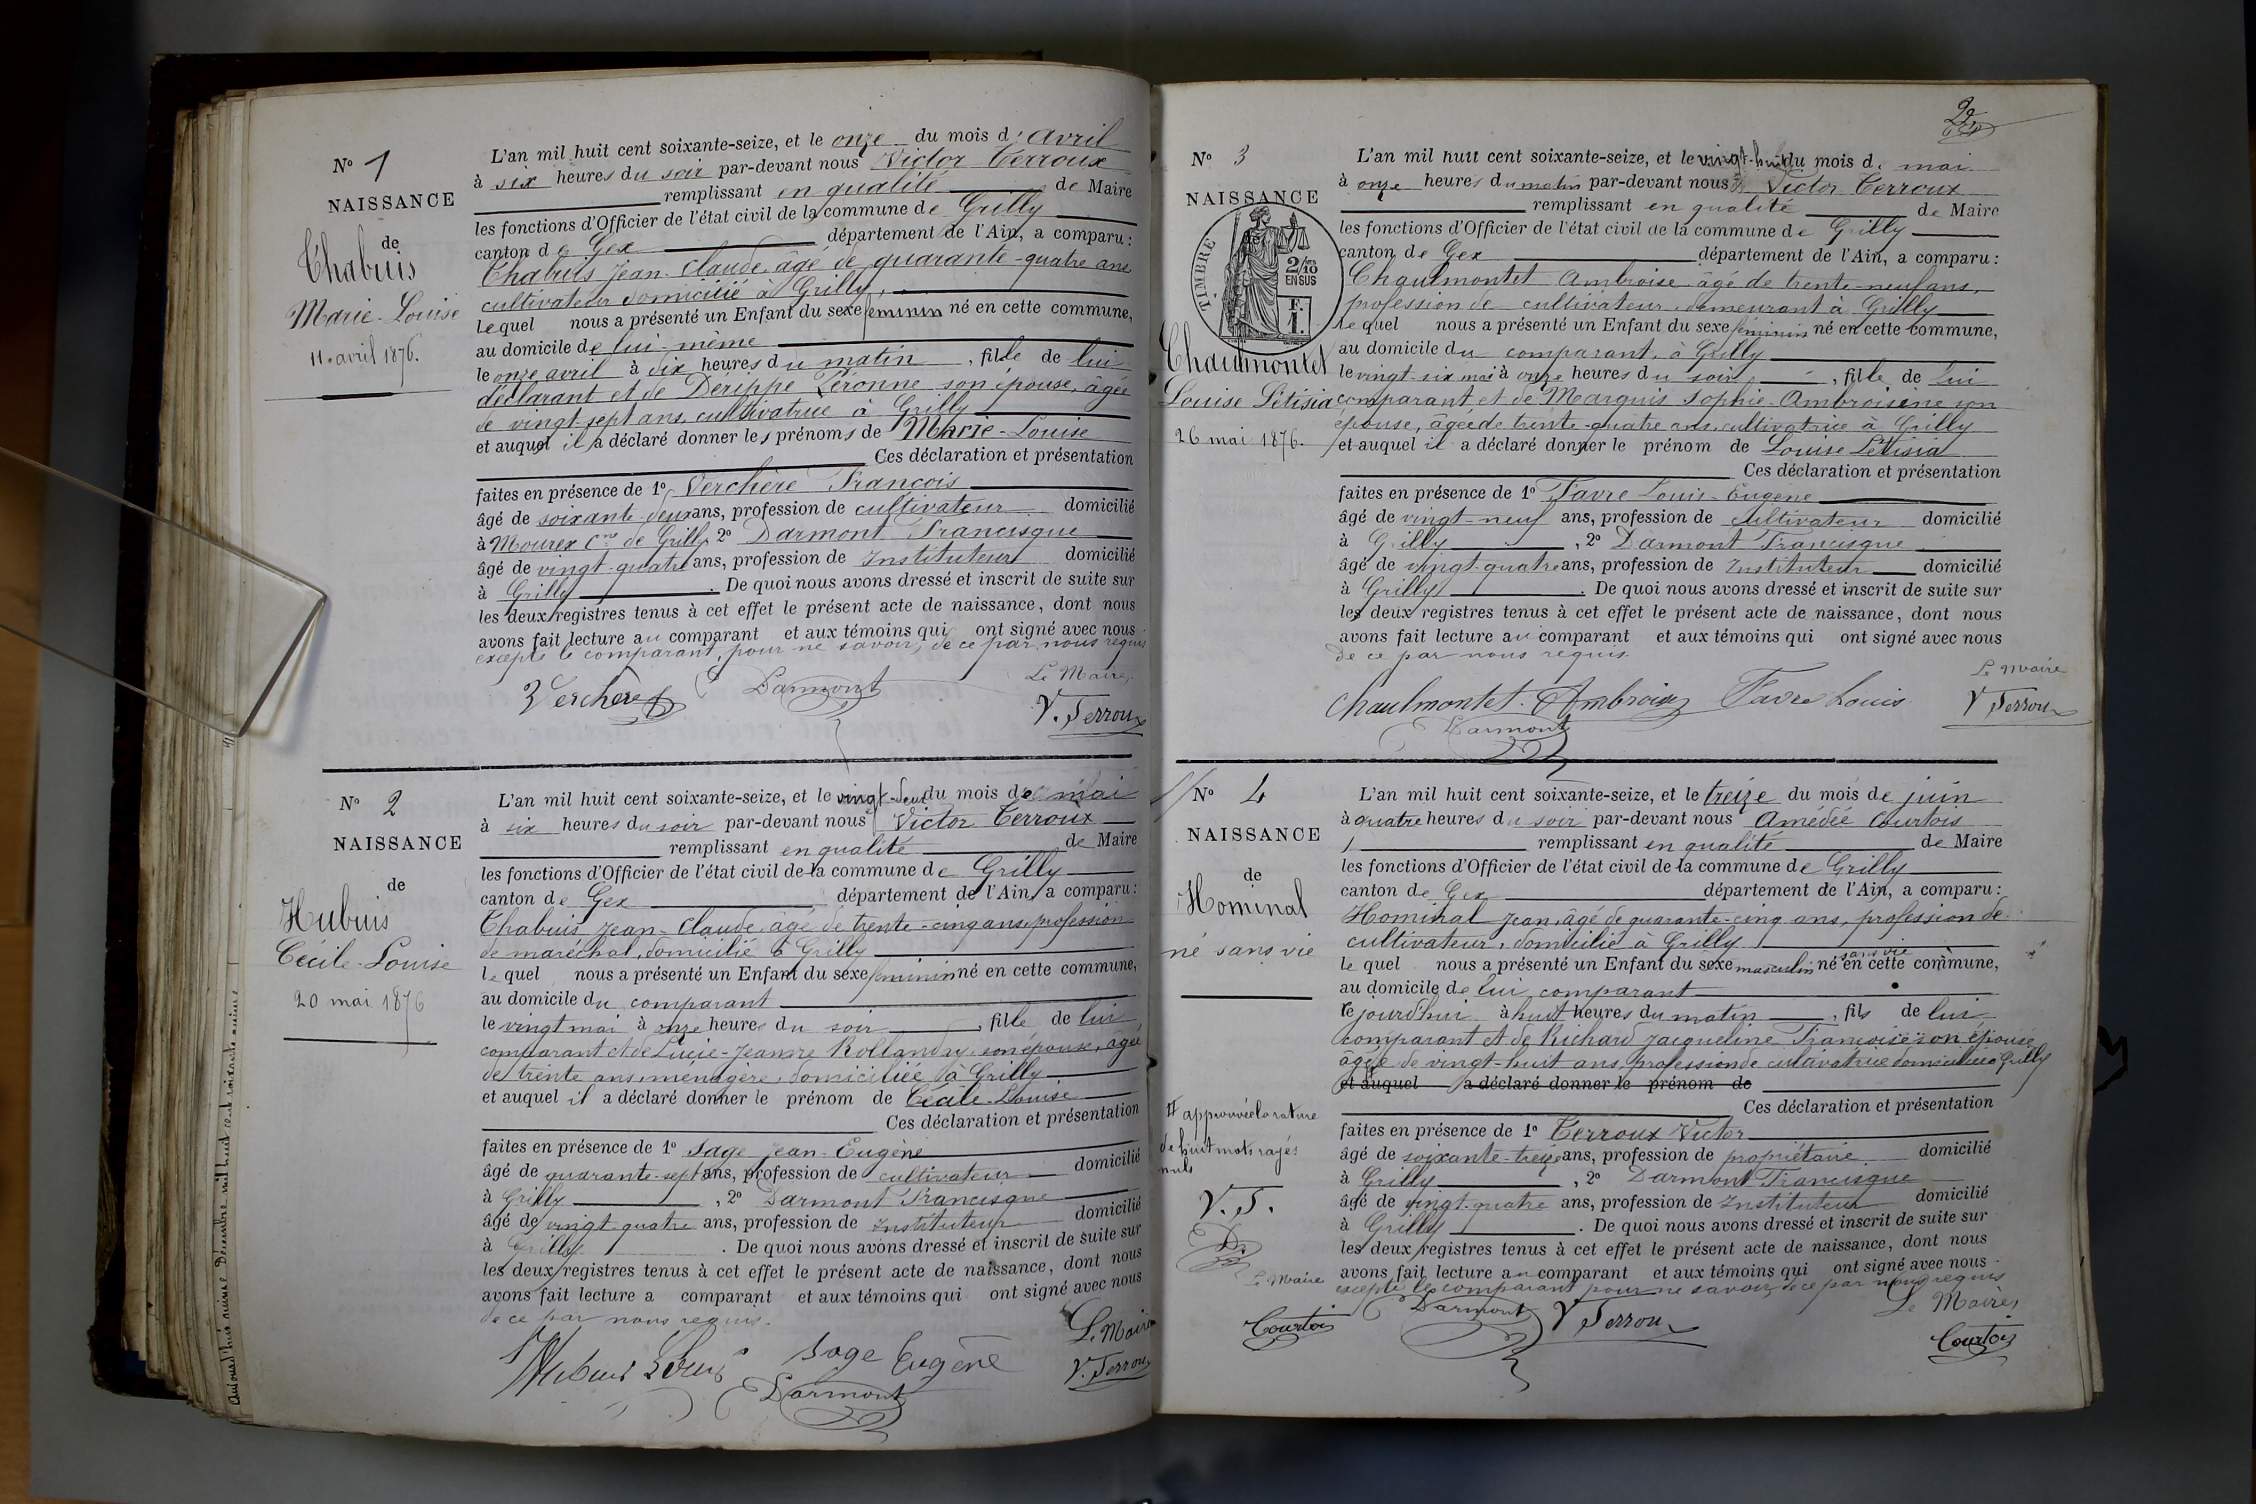 N° 1
NAISSANCE
de
Chabuis
Marie-Louise
11 avril 1876.
L'an mil huit cent soixante-seize, et le onze du mois d'avril
à six heures du soir par-devant nous Victor Terroux
remplissant en qualité de Maire
les fonctions d'Officier de l'état civil de la commune de Grilly
canton de Gex département de l'Ain, a comparu :
Chabuis Jean-Claude, âgé de quarante-quatre ans
cultivateur domicilié à Grilly,
Lequel nous a présenté un Enfant du sexe féminin né en cette commune,
au domicile de lui même
le onze avril à dix heures du matin, fille de lui
déclarant et de Dérippe Péronne son épouse, âgée
de vingt-sept ans, cultivatrice à Grilly
et auquel il a déclaré donner les prénoms de Marie-Louise
Ces déclaration et présentation
faites en présence de 1° Verchère François
âgé de soixante-deux ans, profession de cultivateur domicilié
à Mourex Cne de Grilly, 2° Darmont Francisque
âgé de vingt-quatre ans, profession de Instituteur domicilié
à Grilly. De quoi nous avons dressé et inscrit de suite sur
les deux registres tenus à cet effet le présent acte de naissance, dont nous
avons fait lecture au comparant et aux témoins qui ont signé avec nous
excepté le comparant, pour ne savoir, de ce par nous requis
Le Maire,
Verchère Darmont V. Terroux
N° 2
NAISSANCE
de
Hubuis
Cécile-Louise
20 mai 1876
L'an mil huit cent soixante-seize, et le vingt-deux du mois de mai
à six heures du soir par-devant nous Victor Terroux
remplissant en qualité de Maire
les fonctions d'Officier de l'état civil de la commune de Grilly
canton de Gex département de l'Ain, a comparu :
Chabuis Jean-Claude, âgé de trente-cinq ans, profession
de maréchal, domicilié à Grilly
Lequel nous a présenté un Enfant du sexe féminin né en cette commune,
au domicile du comparant
le vingt mai à onze heures du soir, fille de lui
comparant et de Lucie-Jeanne Rollandry, son épouse, âgée
de trente ans, ménagère, domiciliée à Grilly
et auquel il a déclaré donner le prénom de Cécile-Louise
Ces déclaration et présentation
faites en présence de 1° Sage Jean-Eugène
âgé de quarante-sept ans, profession de cultivateur domicilié
à Grilly, 2° Darmont Francisque
âgé de vingt-quatre ans, profession de Instituteur domicilié
à Grilly. De quoi nous avons dressé et inscrit de suite sur
les deux registres tenus à cet effet le présent acte de naissance, dont nous
avons fait lecture a comparant et aux témoins qui ont signé avec nous
de ce par nous requis.
Le Maire
Sage Eugène V. Terroux
Darmont
2
N° 3
NAISSANCE
de
TIMBRE
2/10
EN SUS
F.
1.
Chaulmontet
Louise Létisia
26 mai 1876.
L'an mil huit cent soixante-seize, et le vingt-huit du mois de mai
à onze heures du matin par-devant nous Victor Terroux
remplissant en qualité de Maire
les fonctions d'Officier de l'état civil de la commune de Grilly
canton de Gex département de l'Ain, a comparu :
Chaulmontet Ambroise âgé de trente-neuf ans,
profession de cultivateur, demeurant à Grilly
Lequel nous a présenté un Enfant du sexe féminin né en cette commune,
au domicile du comparant, à Grilly
le vingt-six mai à onze heures du soir, fille de lui
comparant et de Marquis Sophie-Ambroisine son
épouse, âgée de trente-quatre ans, cultivatrice à Grilly
et auquel il a déclaré donner le prénom de Louise Létisia
Ces déclaration et présentation
faites en présence de 1° Favre Louis-Eugène
âgé de vingt-neuf ans, profession de cultivateur domicilié
à Grilly, 2° Darmont Francisque
âgé de vingt-quatre ans, profession de Instituteur domicilié
à Grilly. De quoi nous avons dressé et inscrit de suite sur
les deux registres tenus à cet effet le présent acte de naissance, dont nous
avons fait lecture au comparant et aux témoins qui ont signé avec nous
de ce par nous requis
Le Maire
Chaulmontet Ambroise Favre Louis V. Terroux
Darmont
N° 4
NAISSANCE
de
Hominal
né sans vie
L'an mil huit cent soixante-seize, et le treize du mois de juin
à quatre heures du soir par-devant nous Amédée Courtois
remplissant en qualité de Maire
les fonctions d'Officier de l'état civil de la commune de Grilly
canton de Gex département de l'Ain, a comparu :
Hominal Jean, âgé de quarante-cinq ans, profession de
cultivateur, domicilié à Grilly
sans vie
Lequel nous a présenté un Enfant du sexe masculin né en cette commune,
au domicile de lui comparant
le jourd'hui à huit heures du matin, fils de lui
comparant et de Richard Jacqueline Françoise son épouse
âgée de vingt-huit ans, profession de cultivatrice domiciliée à Grilly
et auquel a déclaré donner le prénom de
Ces déclaration et présentation
faites en présence de 1° Terroux Victor
âgé de soixante-treize ans, profession de propriétaire domicilié
à Grilly, 2° Darmont Francisque
âgé de vingt-quatre ans, profession de Instituteur domicilié
à Grilly. De quoi nous avons dressé et inscrit de suite sur
les deux registres tenus à cet effet le présent acte de naissance, dont nous
avons fait lecture au comparant et aux témoins qui ont signé avec nous
excepté le comparant pour ne savoir, de ce par nous requis
Le Maire,
Darmont V. Terroux Courtois
approuvée la rature
de huit mots rayés
nuls
V. T.
D.
Le Maire
Courtois